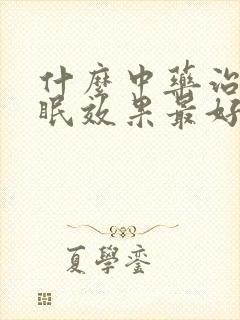 什麼中藥治
眠效果最好
夏學銮